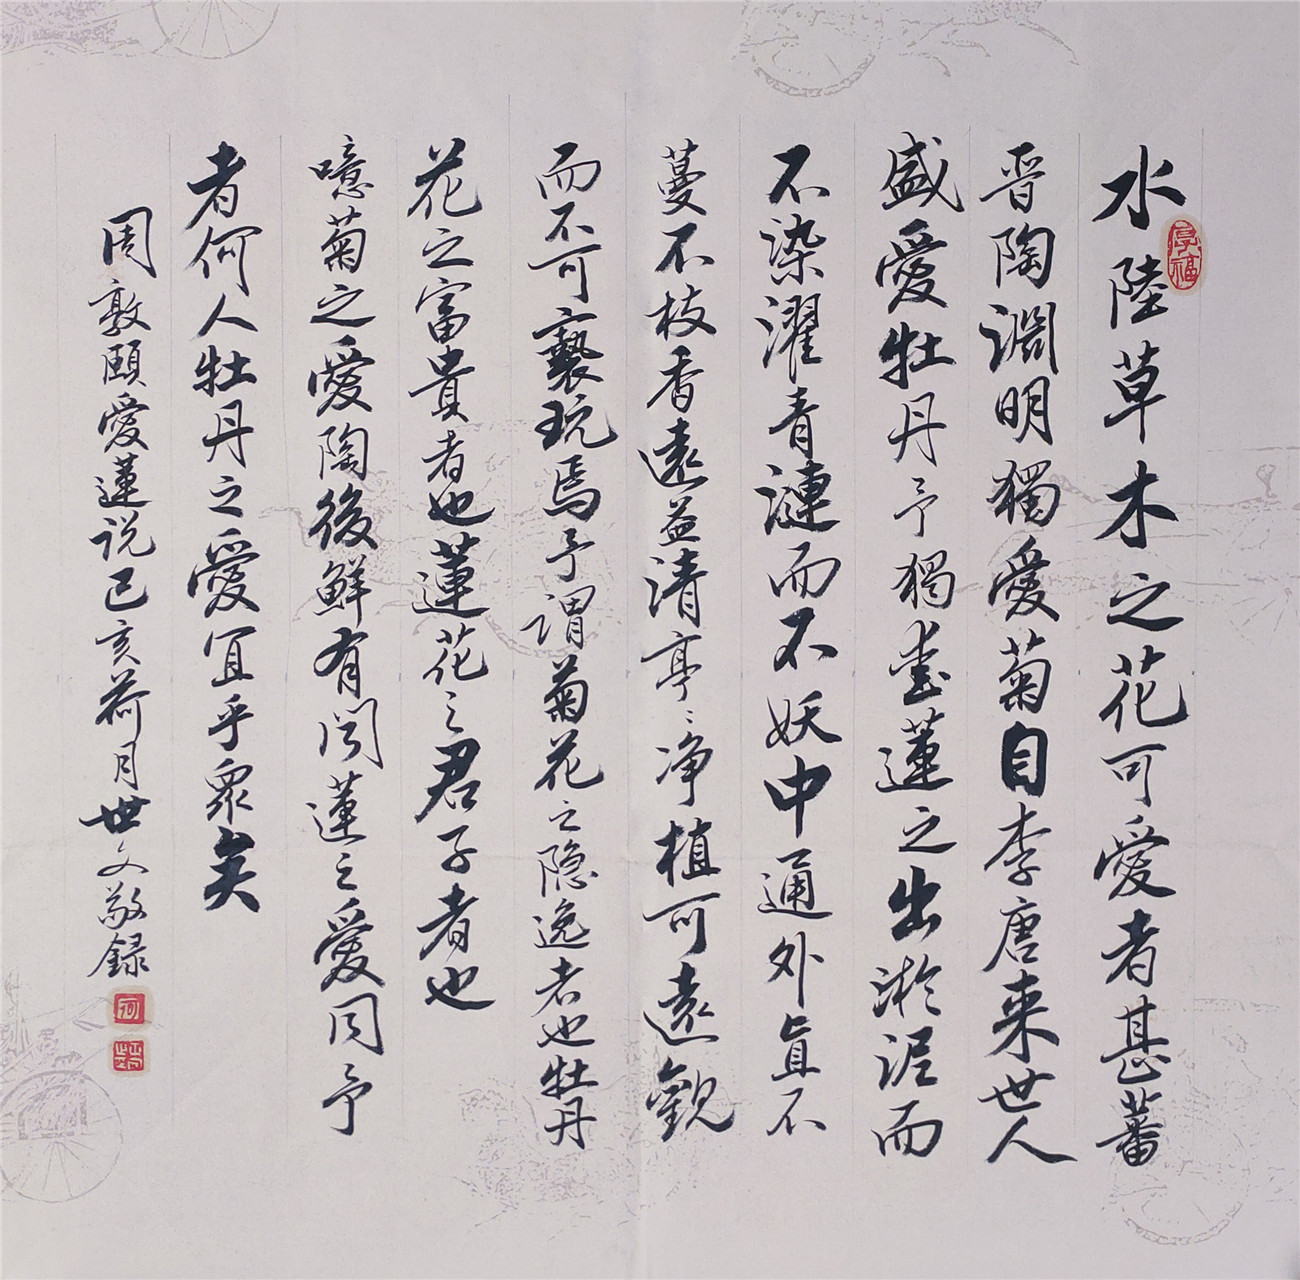 水陸草木之花可愛者甚蕃
晋陶淵明獨愛菊自李唐来世人
盛愛牡丹予獨愛蓮之出淤泥而
不染濯青漣而不妖中通外直不
蔓不枝香遠益清亭〻净植可遠觀
而不可褻玩焉予謂菊花之隐逸者也牡丹
花之富貴者也蓮花之君子者也
噫菊之愛陶後鮮有闻蓮之愛同予
者何人牡丹之愛宜乎衆矣
周敦頤愛蓮说己亥荷月世文敬録
厚福